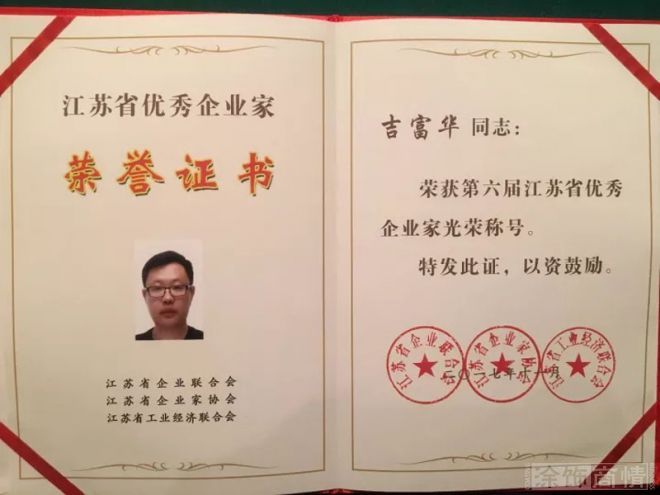 江苏省优秀企业家
荣誉证书
江苏省企业联合会
江苏省企业家协会
江苏省工业经济联合会
吉富华 同志：
荣获第六届江苏省优秀
企业家光荣称号。
特发此证，以资鼓励。
江苏省企业联合会
江苏省企业家协会
江苏省工业经济联合会
二〇一七年十一月
涂饰商情